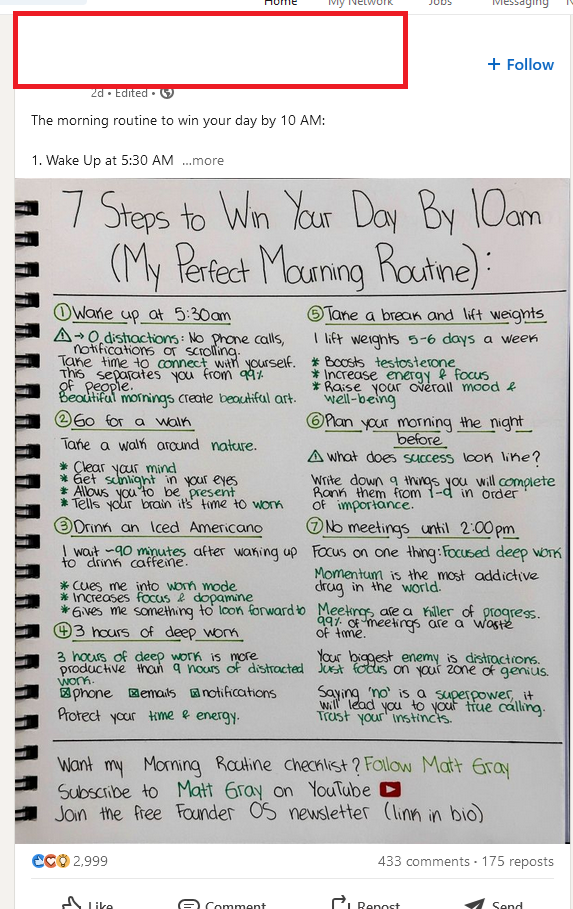 Home My Network Jobs Messaging
+ Follow
2d • Edited •
The morning routine to win your day by 10 AM:
1. Wake Up at 5:30 AM ...more
7 Steps to Win Your Day By 10am
(My Perfect Mourning Routine):
① Wake up at 5:30am
⚠ → 0 distractions: No phone calls,
notifications or scrolling.
Take time to connect with yourself.
This separates you from 99%
of people.
Beautiful mornings create beautiful art.
② Go for a walk
Take a walk around nature.
* Clear your mind
* Get sunlight in your eyes
* Allows you to be present
* Tells your brain it's time to work
③ Drink an Iced Americano
I wait ~90 minutes after waking up
to drink caffeine.
* Cues me into work mode
* Increases focus & dopamine
* Gives me something to look forward to
④ 3 hours of deep work
3 hours of deep work is more
productive than 9 hours of distracted
work.
☒ phone ☒ emails ☒ notifications
Protect your time & energy.
⑤ Take a break and lift weights
I lift weights 5-6 days a week
* Boosts testosterone
* Increase energy & focus
* Raise your overall mood &
well-being
⑥ Plan your morning the night
before
⚠ What does success look like?
Write down 9 things you will complete
Rank them from 1-9 in order
of importance.
⑦ No meetings until 2:00pm
Focus on one thing: Focused deep work
Momentum is the most addictive
drug in the world.
Meetings are a killer of progress.
99% of meetings are a waste
of time.
Your biggest enemy is distractions.
Just focus on your zone of genius.
Saying 'no' is a superpower, it
will lead you to your true calling.
Trust your instincts.
Want my Morning Routine checklist? Follow Matt Gray
Subscribe to Matt Gray on YouTube
Join the free Founder OS newsletter (link in bio)
2,999 433 comments • 175 reposts
Like Comment Repost Send